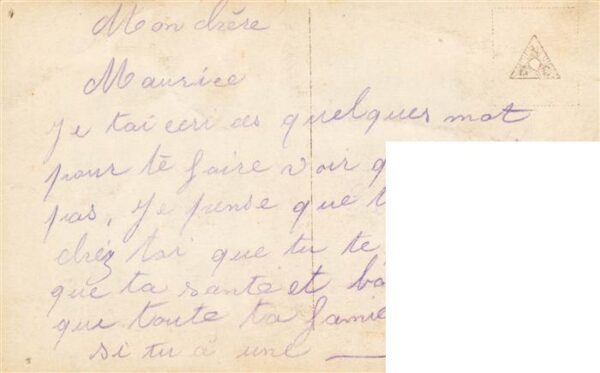 Mon chére
Maurice
Je tai ecri ces quelques mot
pour te faire voir q
pas, Je pense que t
chéz toi que tu te
que ta sante et bo
que toute ta famie
si tu a une